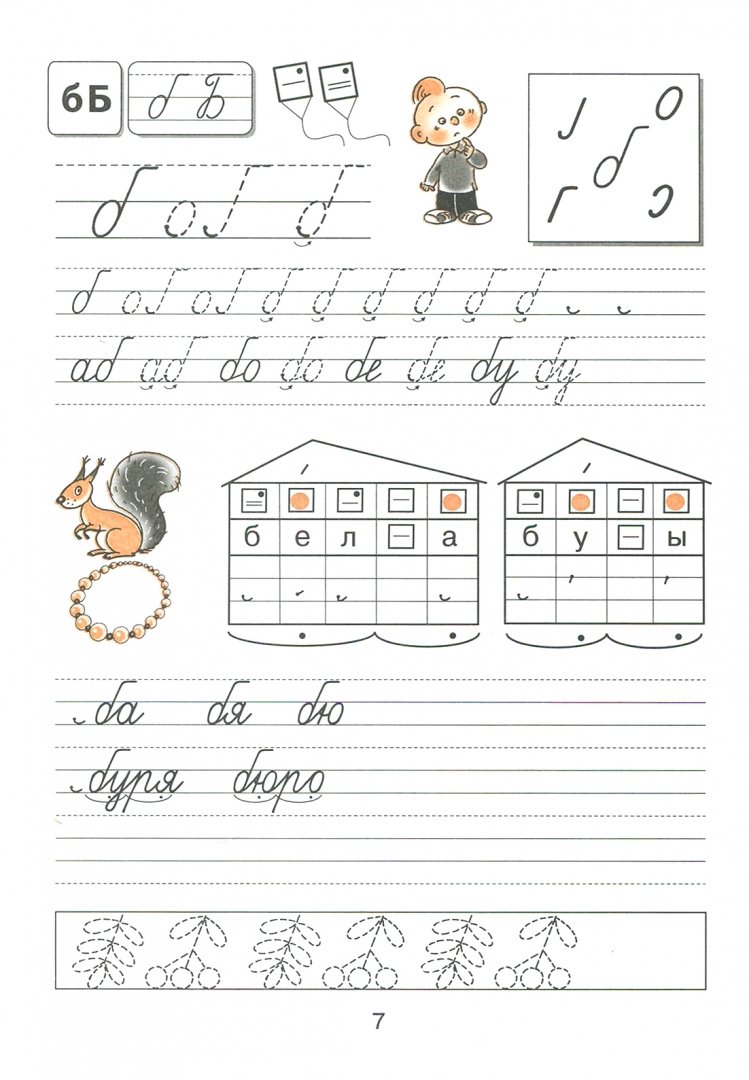 бБ б Б
б
б о г б
б о г о г б б б б б б
аб аб бо бо бе бе бу бу
б е л а б у ы
ба бя бю
буря бюро
7